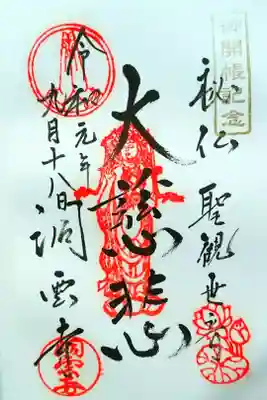 御開帳記念
秘仏 聖観世音
大慈悲心
令和元年
九月十八日 洞雲寺